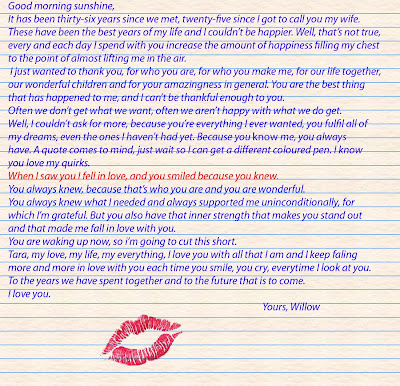 Good morning sunshine,
It has been thirty-six years since we met, twenty-five since I got to call you my wife.
These have been the best years of my life and I couldn't be happier. Well, that's not true,
every and each day I spend with you increase the amount of happiness filling my chest
to the point of almost lifting me in the air.
I just wanted to thank you, for who you are, for who you make me, for our life together,
our wonderful children and for your amazingness in general. You are the best thing
that has happened to me, and I can't be thankful enough to you.
Often we don't get what we want, often we aren't happy with what we do get.
Well, I couldn't ask for more, because you're everything I ever wanted, you fulfil all of
my dreams, even the ones I haven't had yet. Because you know me, you always
have. A quote comes to mind, just wait so I can get a different coloured pen. I know
you love my quirks.
When I saw you I fell in love, and you smiled because you knew.
You always knew, because that's who you are and you are wonderful.
You always knew what I needed and always supported me uninconditionally, for
which I'm grateful. But you also have that inner strength that makes you stand out
and that made me fall in love with you.
You are waking up now, so i'm going to cut this short.
Tara, my love, my life, my everything, I love you with all that I am and I keep faling
more and more in love with you each time you smile, you cry, everytime I look at you.
To the years we have spent together and to the future that is to come.
I love you.
Yours, Willow